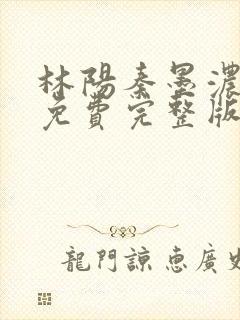 林陽秦墨濃
免費完整版
龍門諒惠廣